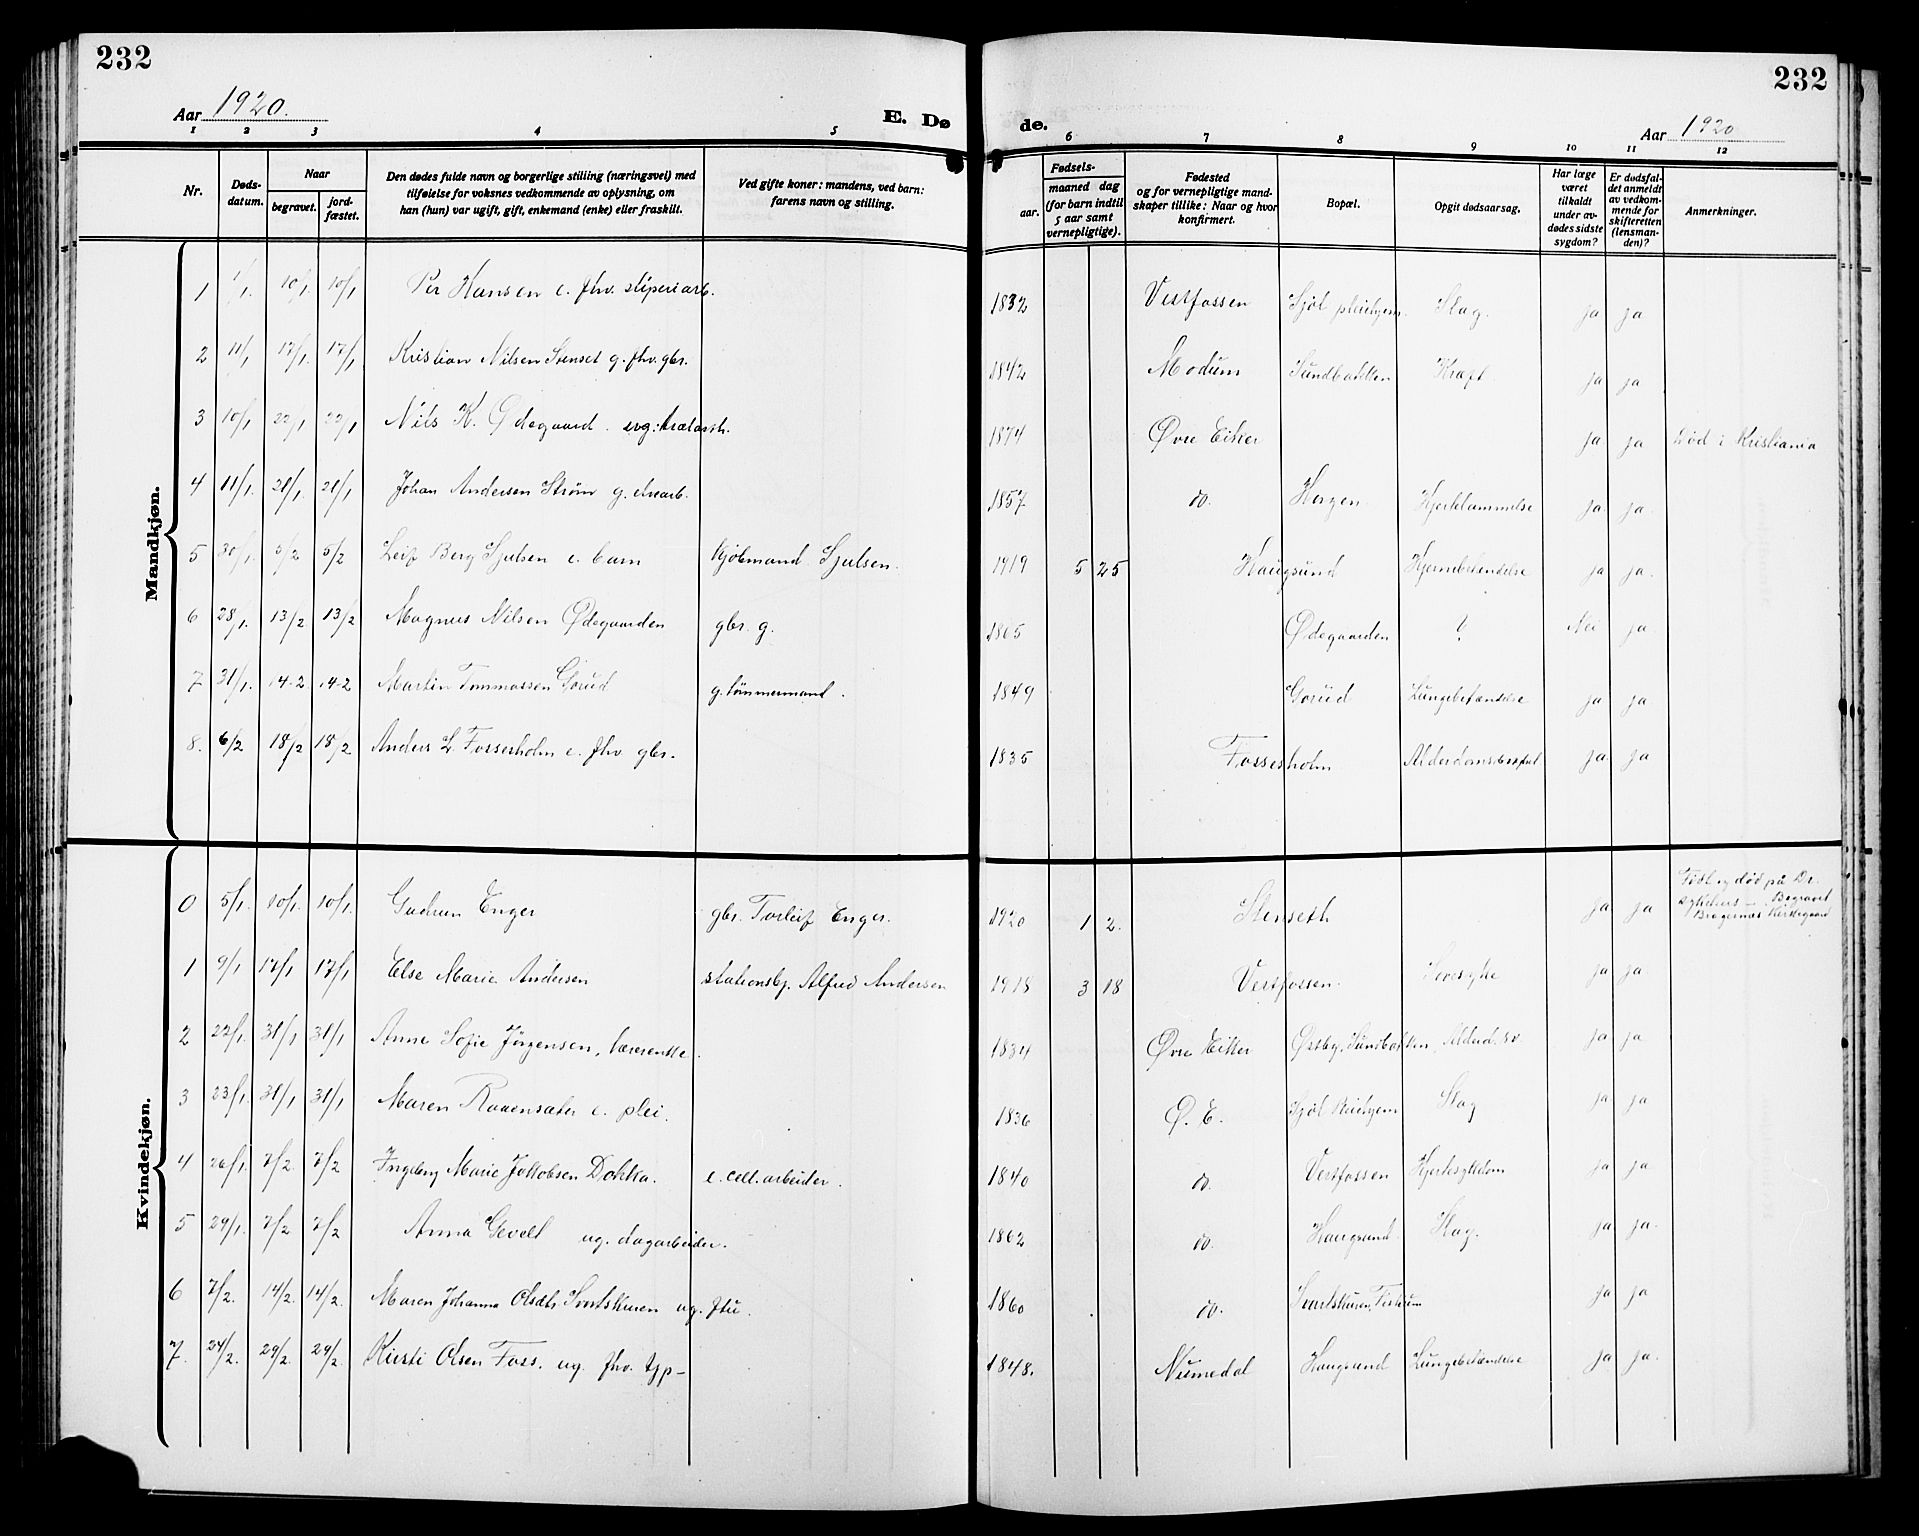 232
232
Aar 1920.
E. Dø
de.
Aar 1920
1 2 3 4 5 6 7 8 9 10 11 12
Nr.
Døds-
datum.
Naar
begravet.
jord-
fæstet.
Den dødes fulde navn og borgerlige stilling (næringsvei) med
tilføielse for voksnes vedkommende av oplysning, om
han (hun) var ugift, gift, enkemand (enke) eller fraskilt.
Ved gifte koner: mandens, ved barn:
farens navn og stilling.
Fødsels-
aar.
maaned dag
(for barn indtil
5 aar samt
vernepligtige).
Fødested
og for vernepligtige mand-
skaper tillike: Naar og hvor
konfirmert.
Bopæl.
Opgit dødsaarsag.
Har læge
været
tilkaldt
under av-
dødes sidste
sygdom?
Er dødsfal-
det anmeldt
av vedkom-
mende for
skifteretten
(lensman-
den)?
Anmerkninger.
Mandkjøn.
1 1/1. 10/1. 10/1 Per Hansen e. fhv. sliperiarb. 1832 Vestfossen Sjøl pleiehjem. Slag. ja ja
2 11/1 17/1. 17/1 Kristian Nilsen Stenset g. fhv. gbr. 1842 Modum Sundbakken Kræft ja ja
3 10/1 22/1 22/1 Nils K. Ødegaard 1874 Øvre Eiker ja ja Død i Kristiania
4 11/1. 21/1 21/1 Johan Andersen Strøm g. 1857 do. Horgen. Hjertelammelse ja ja.
5 30/1. 5/2 5/2 Leif Berg Sjulsen e. barn Kjøbmand Sjulsen. 1919 5 25 Haugsund Hjernebetændelse ja ja.
6 28/1. 13/2 13/2 Magnus Nilsen Ødegaarden gbr. g. 1865 Ødegaarden ? Nei ja
7 31/1. 14-2 14-2 Martin Tommassen Gorud g. tømmermand. 1849 Gorud Lungebetændelse ja ja
8. 6/2 18/2 18/2 Anders L. Fossesholm e. fhv gbr. 1835 Fossesholm ja ja
Kvindekjøn.
0 5/1. 10/1. 10/1. Gudrun Enger gbr. Torleif Enger. 1920 1 2. Stenseth ja ja Født og død på Dr.
sykehus – Begravet
Bragernæs Kirkegaard
1 9/1 17/1 17/1 Else Marie Andersen stationsbj. Alfred Andersen 1918 3 18 Vestfossen. Sovesyke ja ja
2 22/1. 31/1 31/1 Anne Sofie Jørgensen, lærerenke. 1834 Øvre Eiker Østby, Sundbakken, Alderd. sv. ja ja
3 23/1. 31/1 31/1 Maren Raaensæter e. plei. 1836 Ø. E. Sjøl Pleiehjem Slag ja ja
4 26/1. 7/2. 7/2 Ingeborg Marie Jakobsen Dokka. e. cell. arbeider. 1840 do. Vestfossen Hjertesykdom ja ja
5 29/1. 7/2 7/2 Anna Gevelt ug. dagarbeider. 1862 do. Haugsund. Slag. ja ja.
6 7/2. 14/2. 14/2. Maren Johanna Olsdtr. Svartskuren ug. 1860 do. Svartskuren, Fiskum ja ja
7. 24/2. 29/2. 29/2 Kirsti Olsen Foss. ug. fhv. 1848. Numedal Haugsund Lungebetændelse ja ja.